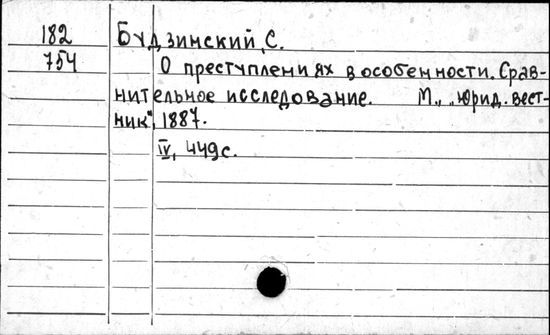 182 Будзинский, С.
754 О преступлениях в особенности. Срав-
нительное исследование. М., „Юрид. вест-
ник", 1887.
IV, 449с.